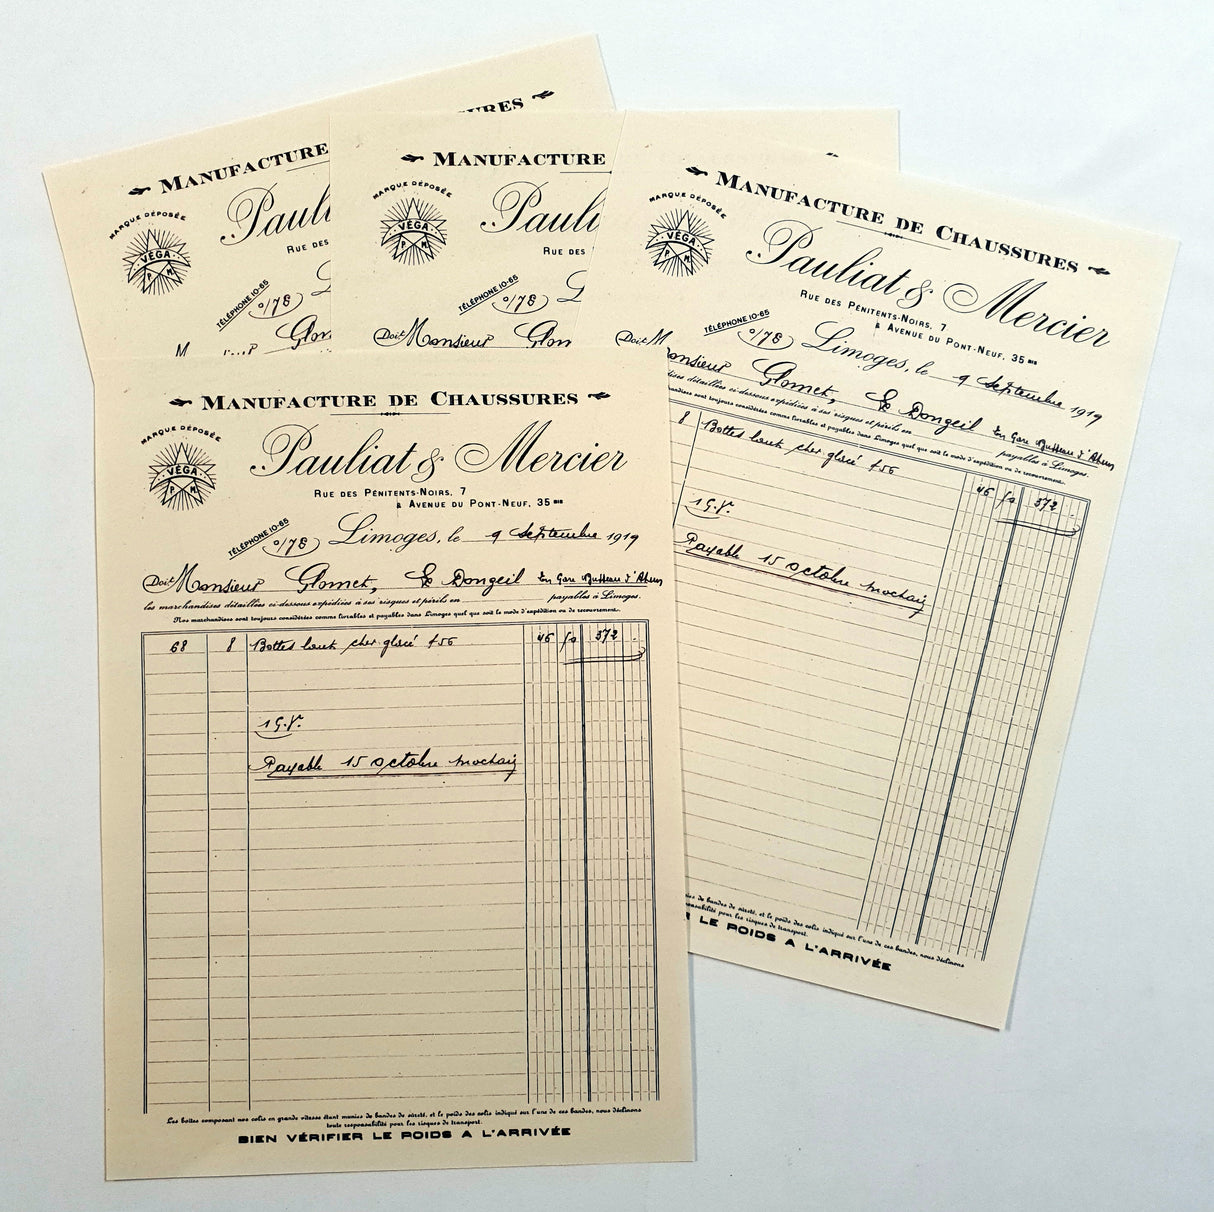 MANUFACTURE
URES
MARQUE DÉPOSÉE
VÉGA
P M
Pauli
RUE DES
TÉLÉPHONE 10-65
0/78
L
M
Glom
MANUFACTURE
MARQUE DÉPOSÉE
VÉGA
P M
Pauli
RUE DES
TÉLÉPHONE 10-65
0/78
L
Doit Monsieur Glom
MANUFACTURE DE CHAUSSURES
MARQUE DÉPOSÉE
VÉGA
P M
Pauliat & Mercier
RUE DES PÉNITENTS-NOIRS, 7
& AVENUE DU PONT-NEUF, 35 BIS
TÉLÉPHONE 10-65
0/78
Limoges, le 9 Septembre 1919
Doit Monsieur Glomet, Le Dongeil En Gare Busseau d'Ahun
dises détaillées ci-dessous expédiées à ses risques et périls en payables à Limoges.
sont toujours considérées comme livrables et payables dans Limoges quel que soit le mode d'expédition ou de recouvrement.
8 Bottes haut chev glacé 456 46 50 372
1 G.V.
Payable 15 octobre prochain
de bandes de sûreté, et le poids des colis indiqué sur l'une de ces bandes, nous déclinons
responsabilité pour les risques de transport.
R LE POIDS A L'ARRIVÉE
MANUFACTURE DE CHAUSSURES
MARQUE DÉPOSÉE
VÉGA
P M
Pauliat & Mercier
RUE DES PÉNITENTS-NOIRS, 7
& AVENUE DU PONT-NEUF, 35 BIS
TÉLÉPHONE 10-65
0/78
Limoges, le 9 Septembre 1919
Doit Monsieur Glomet, Le Dongeil En Gare Busseau d'Ahun
les marchandises détaillées ci-dessous expédiées à ses risques et périls en payables à Limoges.
Nos marchandises sont toujours considérées comme livrables et payables dans Limoges quel que soit le mode d'expédition ou de recouvrement.
68 8 Bottes haut chev glacé 456 46 50 372
1 G.V.
Payable 15 octobre prochain
Les boîtes composant nos colis en grande vitesse étant munies de bandes de sûreté, et le poids des colis indiqué sur l'une de ces bandes, nous déclinons
toute responsabilité pour les risques de transport.
BIEN VÉRIFIER LE POIDS A L'ARRIVÉE